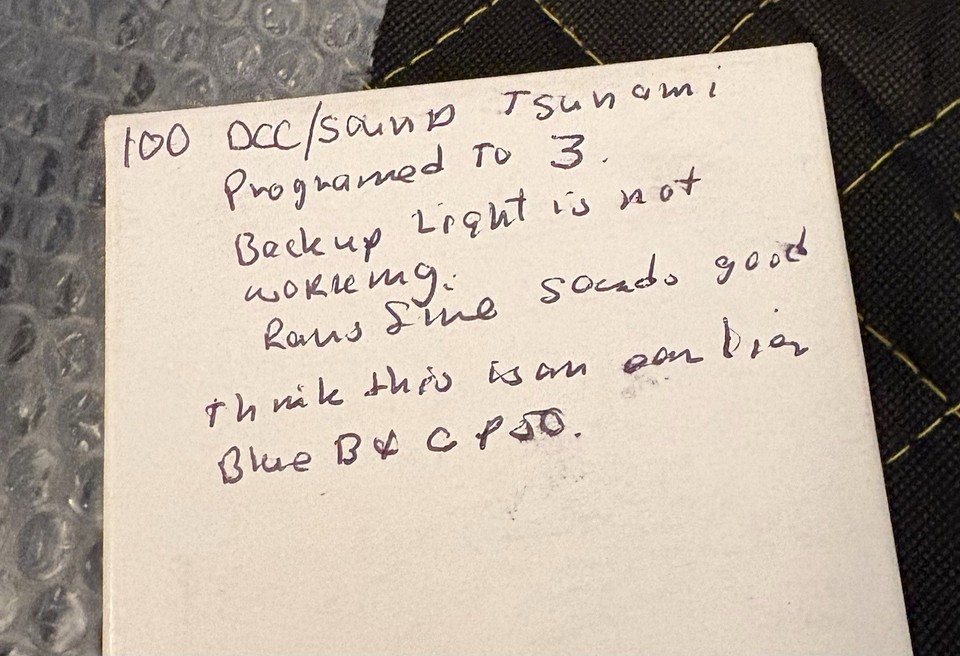 100 DCC/Sound Tsunami
Programed To 3.
Backup Light is not
working.
Rans fine sounds good
think this is an earlier
Blue Box C P50.